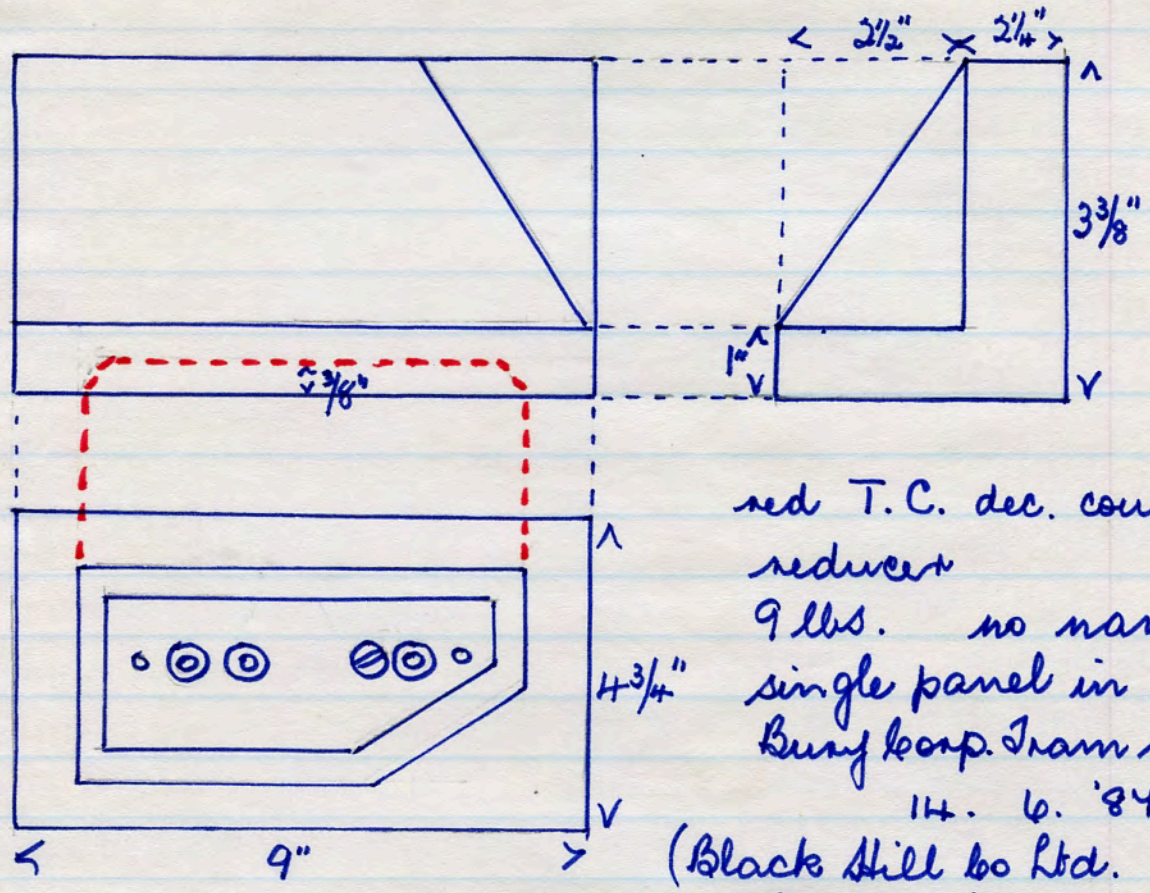 2½" 2¼"
3⅜"
1"
⅜"
red T.C. dec.
reducer
9 lbs. no
4¾"
single panel in
Bury Corp. Tram
14. 6. '84
9"
(Black Hill Co Ltd.